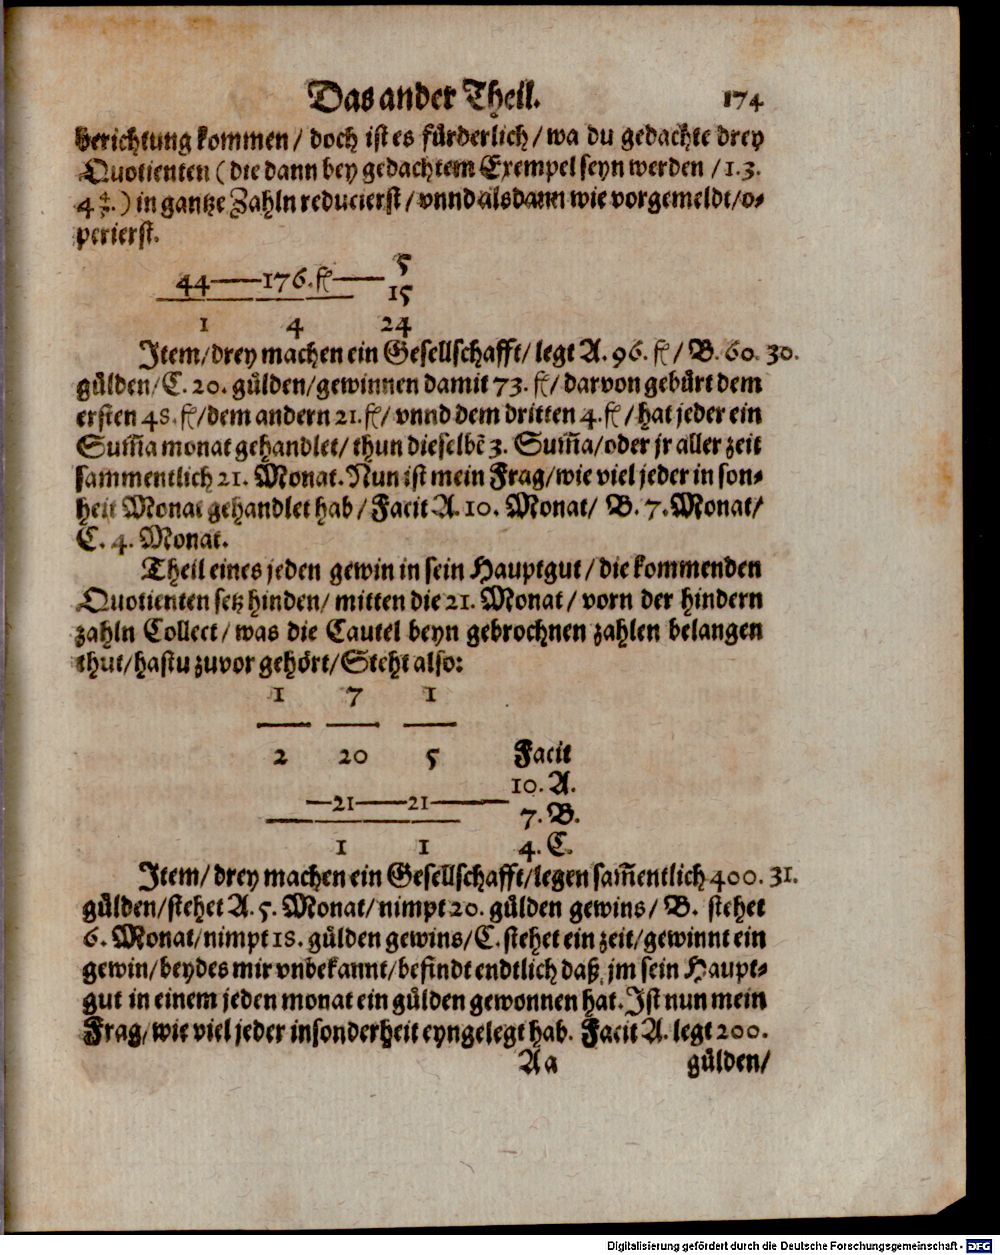 Das ander Theil. 174
berichtung kommen / doch ist es fürderlich / wa du gedachte drey
Quotienten ( die dann bey gedachtem Exempel seyn werden / 1. 3.
4 4/5. ) in gantze Zahln reducierst / vnnd alsdann wie vorgemeldt / o⸗
perierst.
5
44——176. fl——
15
1 4 24
Item / drey machen ein Gesellschafft / legt A. 96. fl / B. 60. 30.
gülden / C. 20. gülden / gewinnen damit 73. fl / darvon gebürt dem
ersten 48. fl / dem andern 21. fl / vnnd dem dritten 4. fl / hat jeder ein
Sum̃a monat gehandlet / thun dieselbē 3. Sum̃a / oder jr aller zeit
sammentlich 21. Monat. Nun ist mein Frag / wie viel jeder in son⸗
heit Monat gehandlet hab / Facit A. 10. Monat / B. 7. Monat /
C. 4. Monat.
Theil eines jeden gewin in sein Hauptgut / die kommenden
Quotienten setz hinden / mitten die 21. Monat / vorn der hindern
zahln Collect / was die Cautel beyn gebrochnen zahlen belangen
thut / hastu zuvor gehört / Steht also:
1 7 1
2 20 5 Facit
10. A.
—21——21——
7. B.
1 1 4. C.
Item / drey machen ein Gesellschafft / legen sam̃entlich 400. 31.
gülden / stehet A. 5. Monat / nimpt 20. gülden gewins / B. stehet
6. Monat / nimpt 18. gülden gewins / C. stehet ein zeit / gewinnt ein
gewin / beydes mir vnbekannt / befindt endtlich daß jm sein Haupt⸗
gut in einem jeden monat ein gülden gewonnen hat. Ist nun mein
Frag / wie viel jeder insonderheit eyngelegt hab. Facit A. legt 200.
Aa gülden /
Digitalisierung gefördert durch die Deutsche Forschungsgemeinschaft - DFG